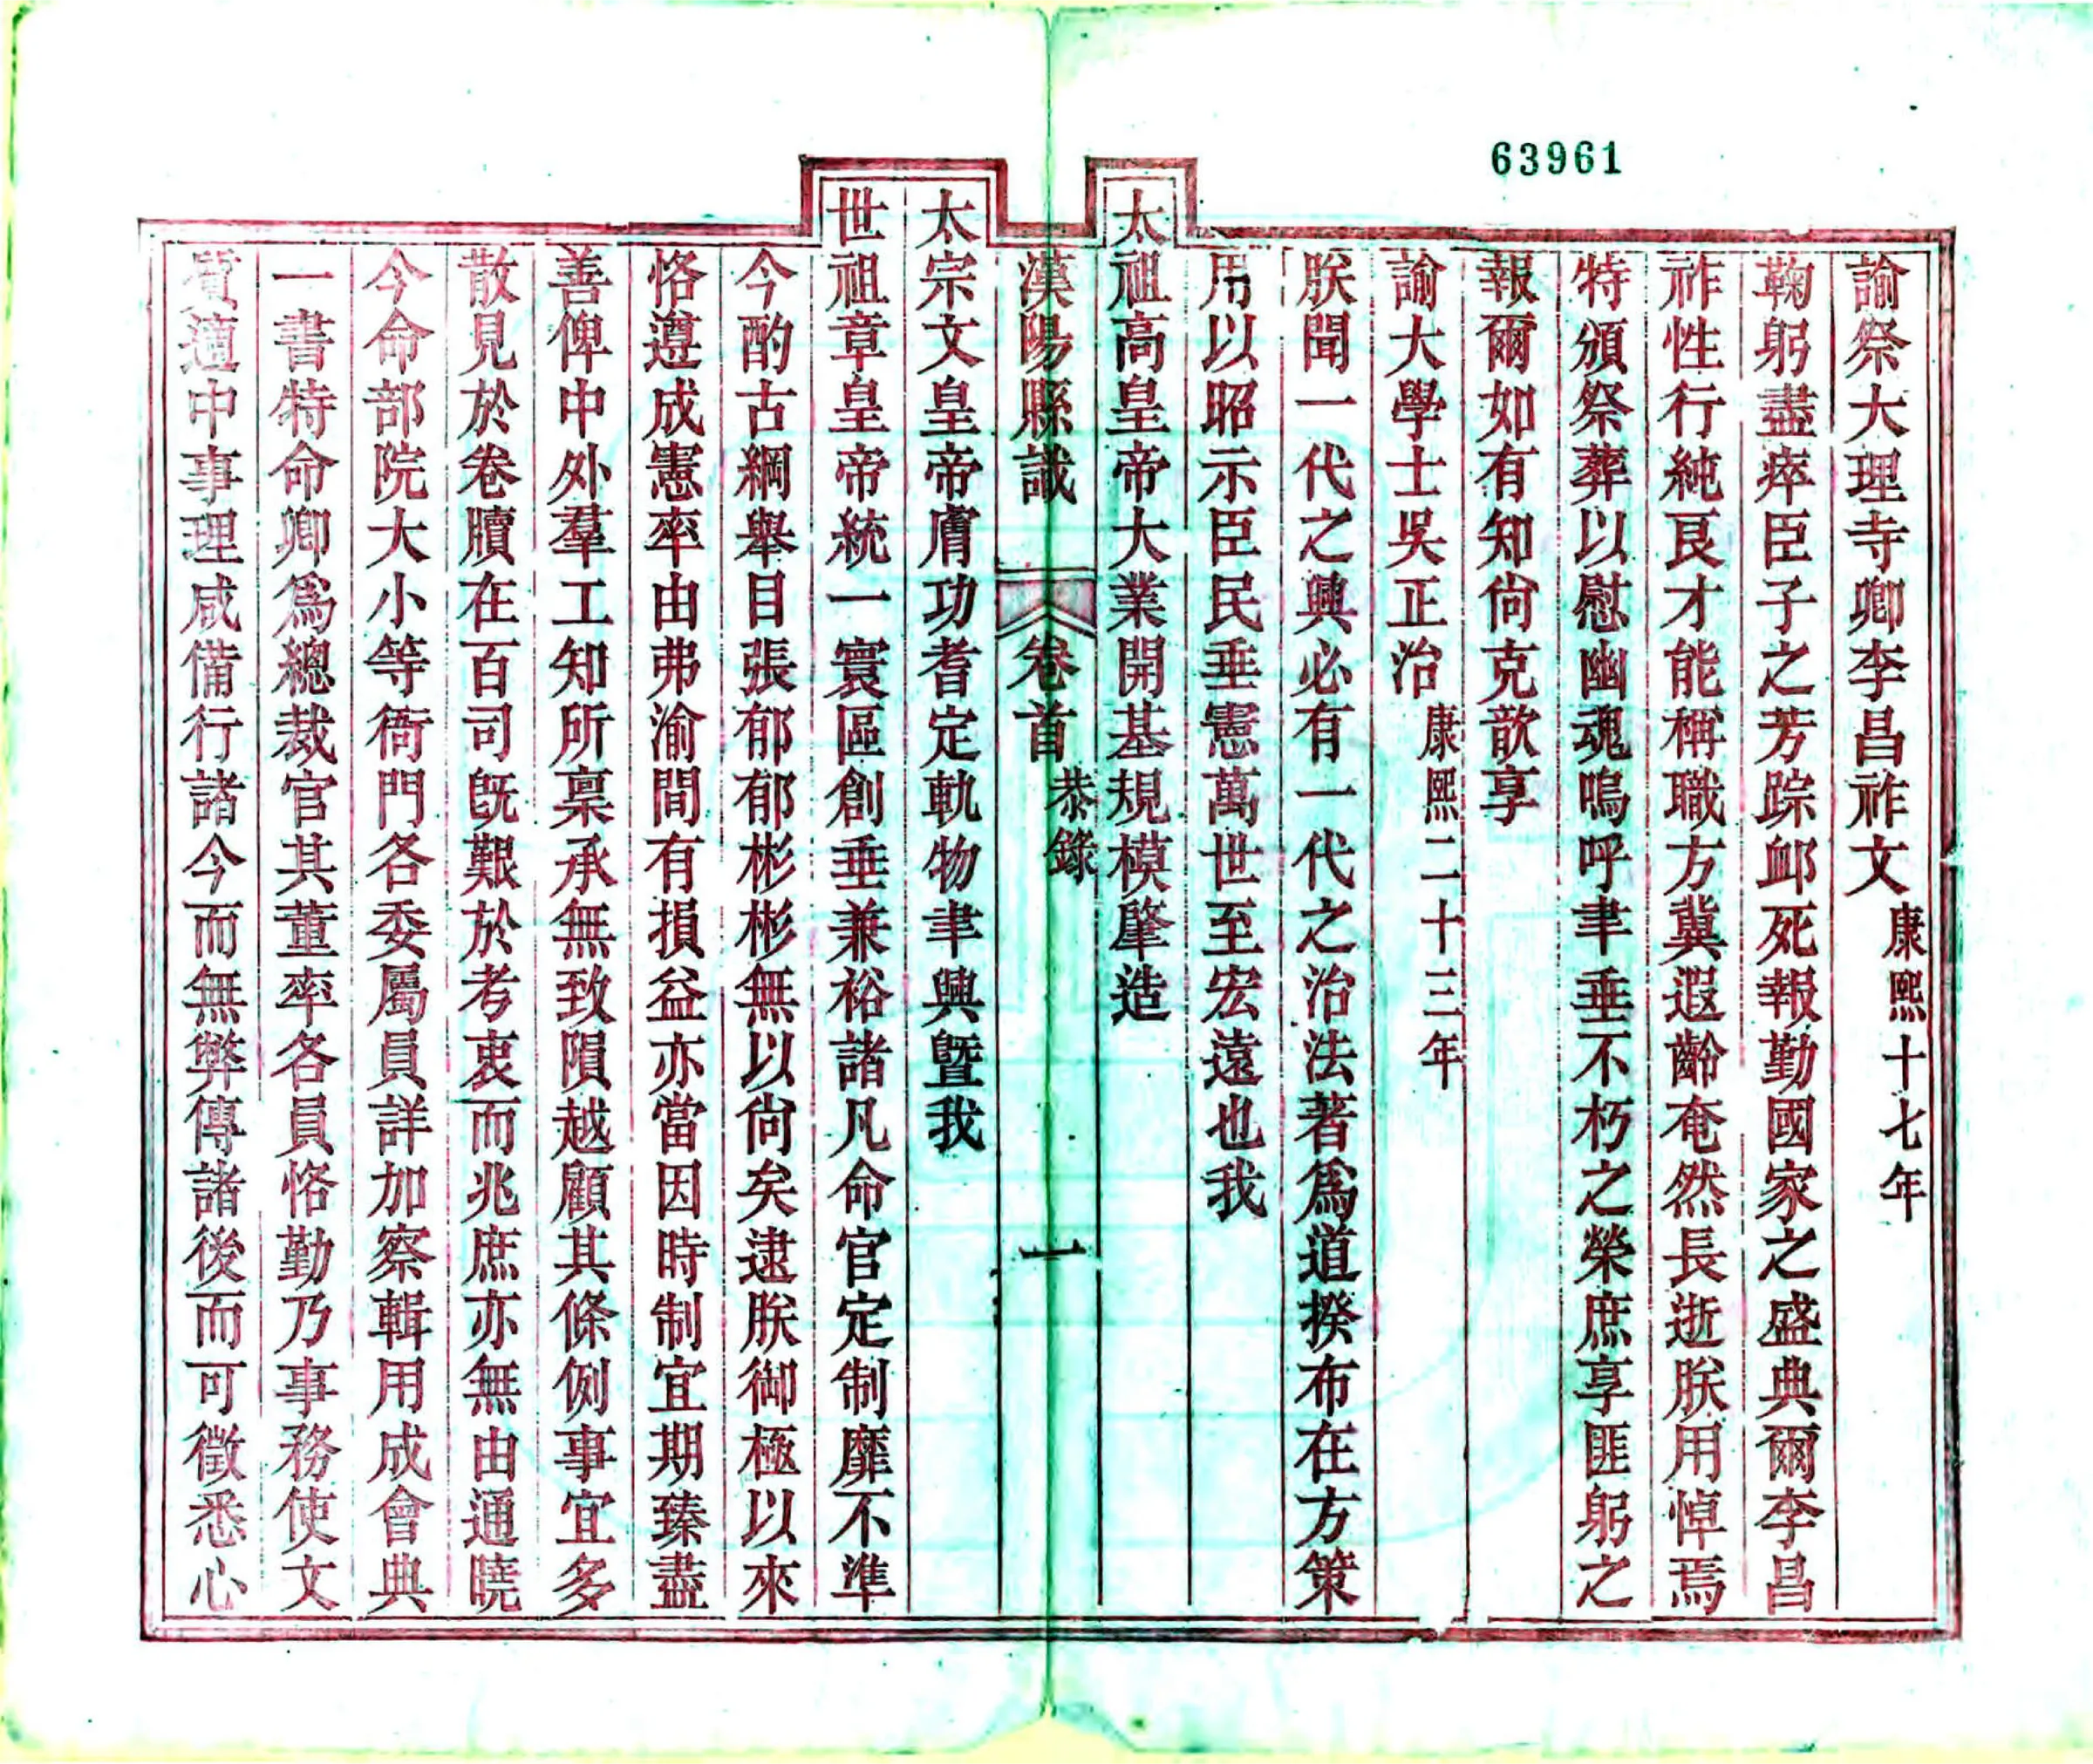 63961
諭祭大理寺卿李昌祚文康熙十七年
鞠躬盡瘁臣子之芳踪卹死報勤國家之盛典爾李昌
祚性行純良才能稱職方冀遐齡奄然長逝朕用悼焉
特頒祭葬以慰幽魂嗚呼聿垂不朽之榮庶享匪躬之
報爾如有知尙克歆享
諭大學士吳正治康熙二十三年
朕聞一代之興必有一代之治法著爲道揆布在方策
用以昭示臣民垂憲萬世至宏遠也我
太祖高皇帝大業開基規模肇造
漢陽縣識 卷首恭錄 一
太宗文皇帝膚功耆定軌物聿興曁我
世祖章皇帝統一寰區創垂兼裕諸凡命官定制靡不準
今酌古綱舉目張郁郁彬彬無以尙矣逮朕御極以來
恪遵成憲率由弗渝間有損益亦當因時制宜期臻盡
善俾中外羣工知所稟承無致隕越顧其條例事宜多
散見於卷牘在百司旣艱於考衷而兆庶亦無由通曉
今命部院大小等衙門各委屬員詳加察輯用成會典
一書特命卿爲總裁官其董率各員恪勤乃事務使文
質適中事理咸備行諸今而無弊傳諸後而可徵悉心